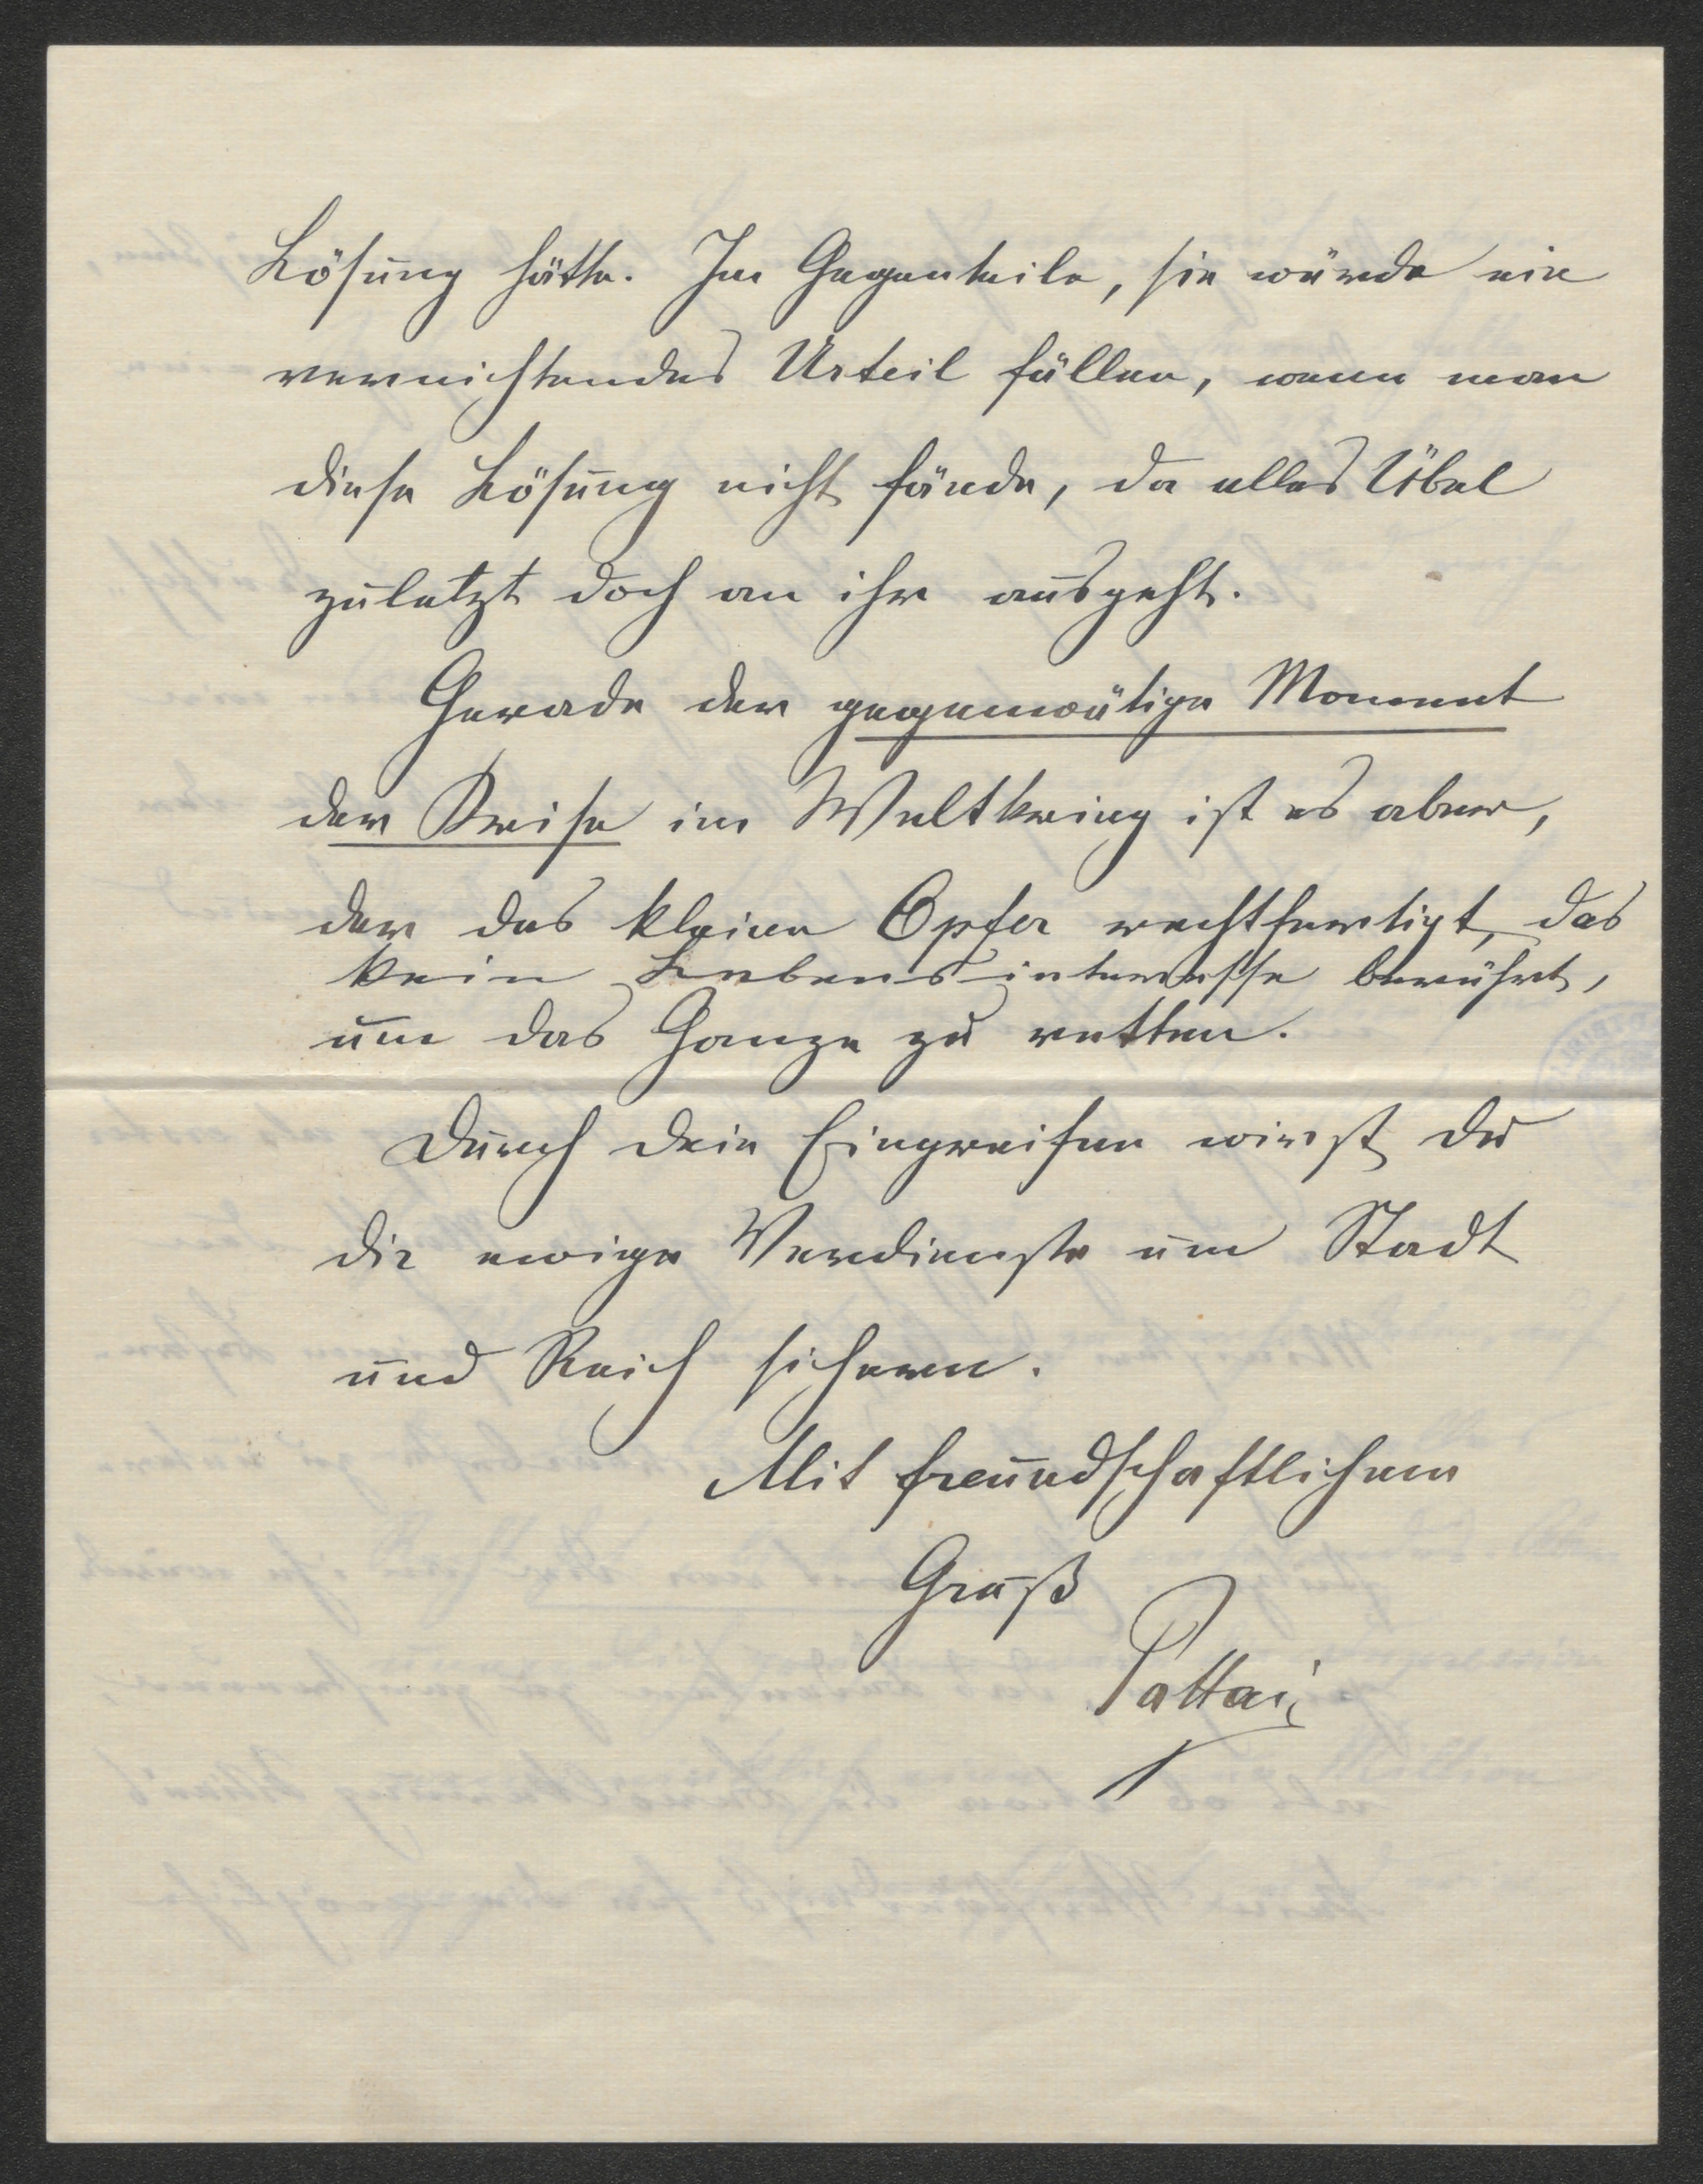 Lösung hätte. Im Gegenteile, sie würde ein
vernichtendes Urteil fällen, wenn man
diese Lösung nicht fände, da alles Übel
zuletzt doch an ihr ausgeht.
Gerade der gegenwärtige Moment
der Krise im Weltkrieg ist es aber,
der das kleine Opfer rechtfertigt, das
kein Lebensinteresse berührt,
um das Ganze zu retten.
Durch dein Eingreifen wirst du
dir ewige Verdienste um Stadt
und Reich sichern.
Mit freundschaftlichem
Gruß
Pattai